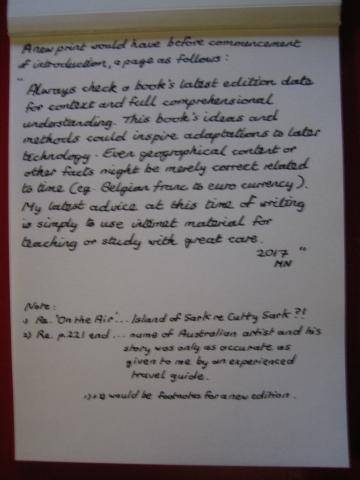 A new print would have before commencement
of introduction, a page as follows:
"Always check a book's latest edition date
for context and full comprehensional
understanding. This book's ideas and
methods could inspire adaptations to later
technology. Even geographical content or
other facts might be merely correct related
to time (eg. Belgian franc to euro currency).
My latest advice at this time of writing
is simply to use internet material for
teaching or study with great care.
2017 "
MN
Note:
1) Re. 'On the Air' ... Island of Sark re Cutty Sark ?!
2) Re. p.221 end ... name of Australian artist and his
story was only as accurate as
given to me by an experienced
travel guide.
1)+2) would be footnotes for a new edition.